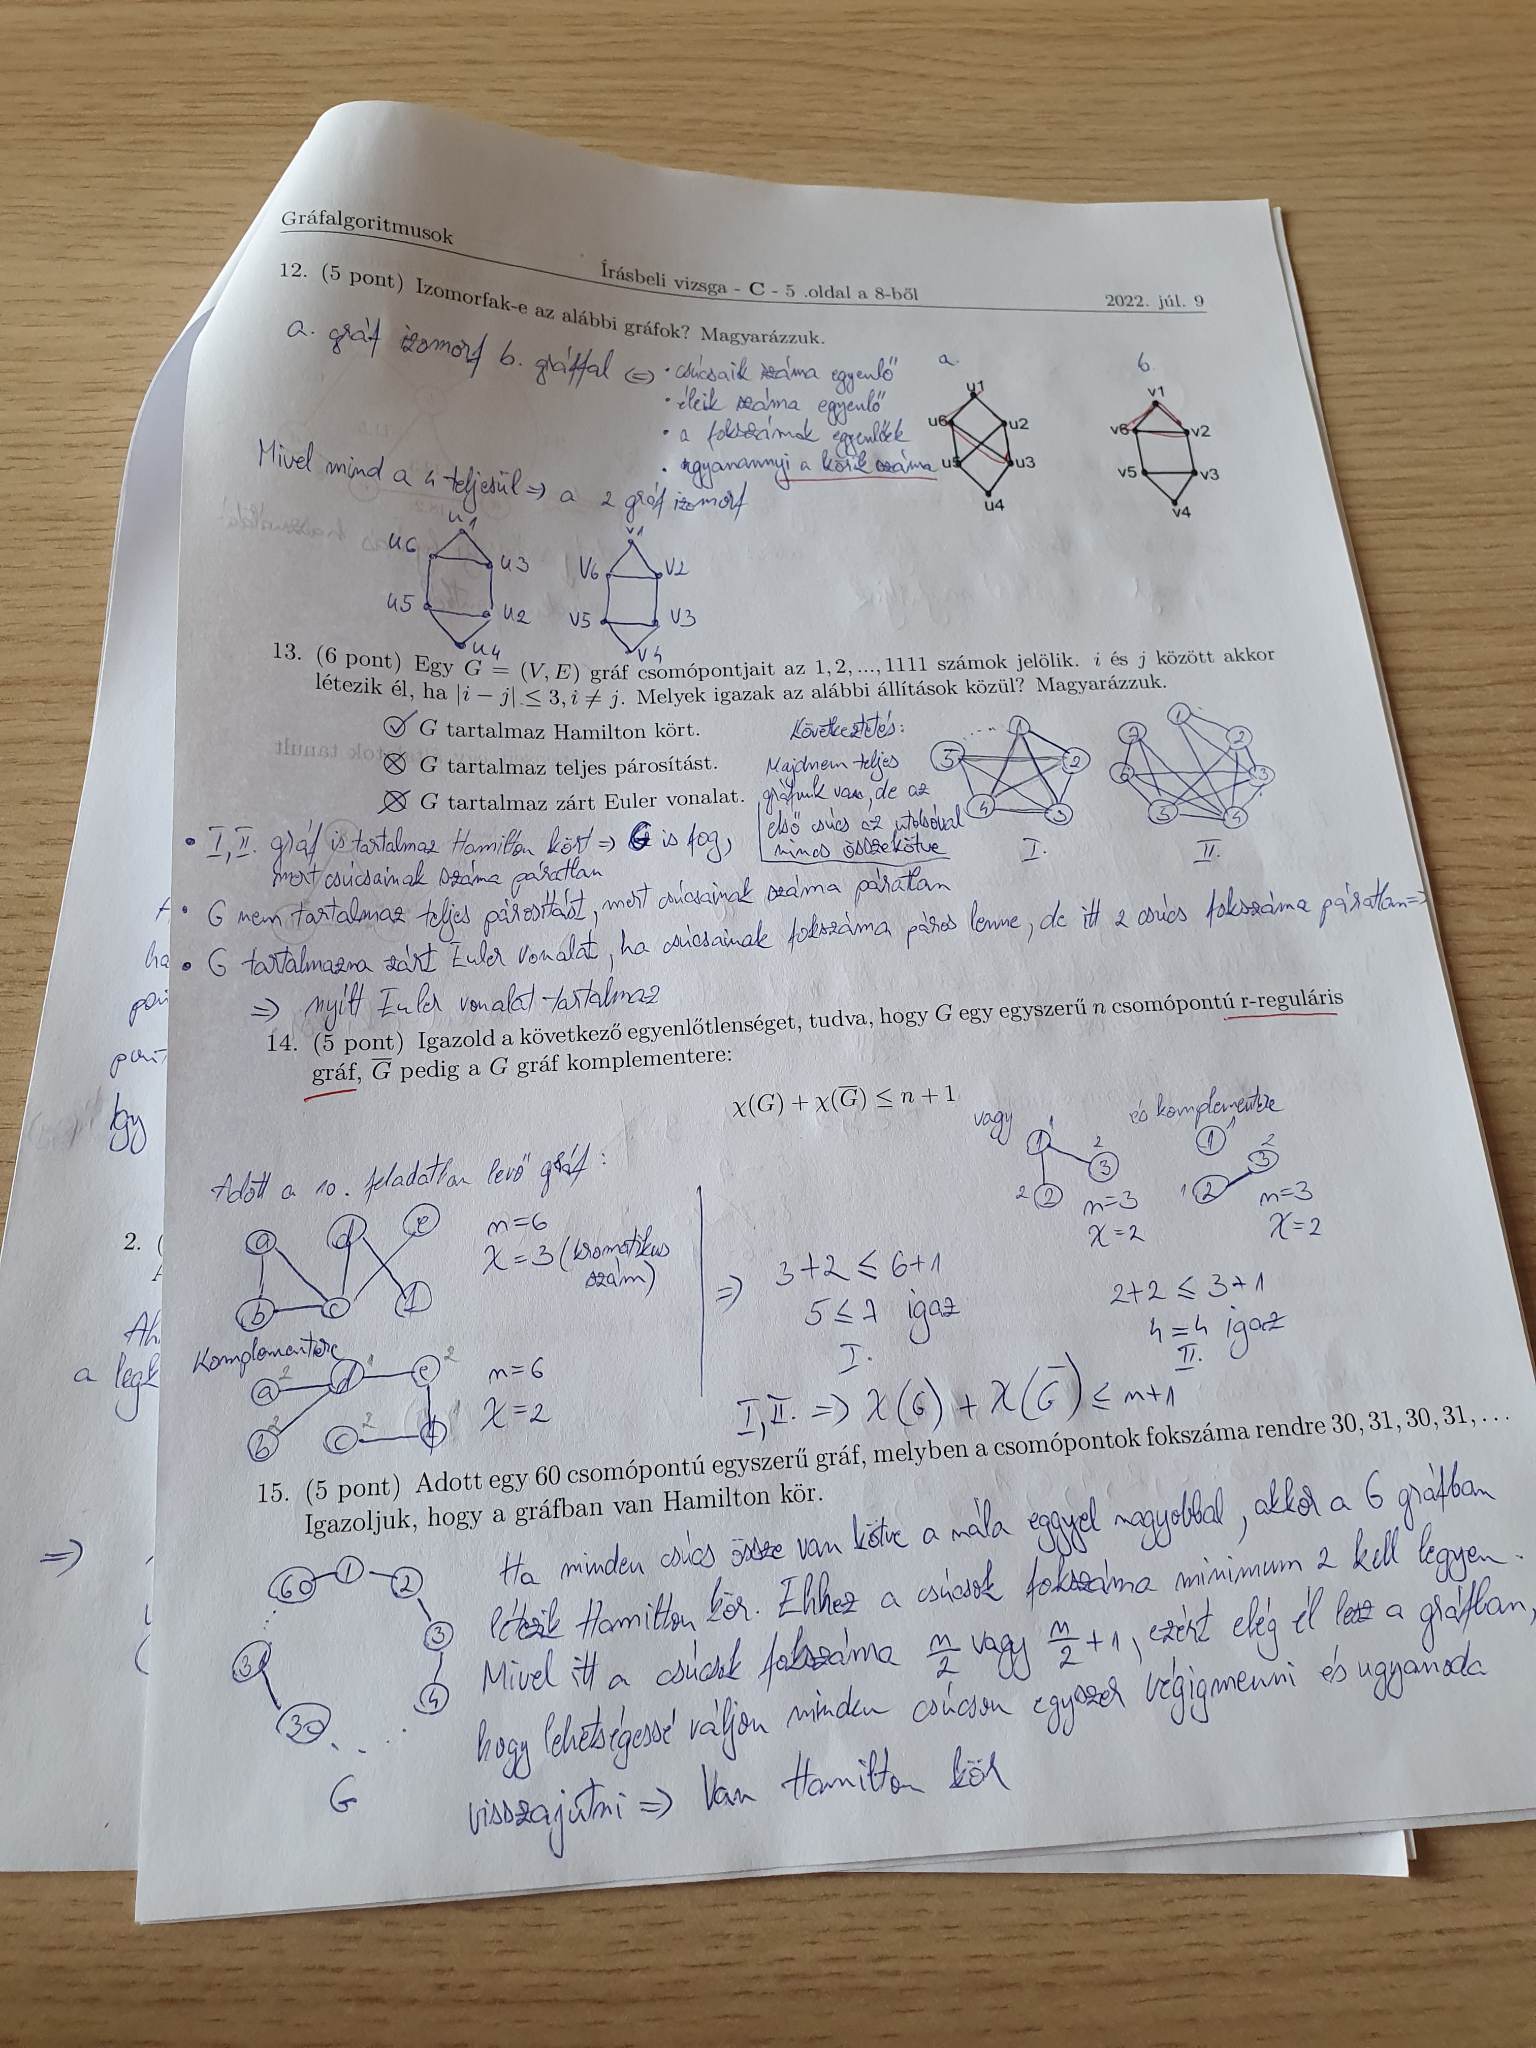 Gráfalgoritmusok
Írásbeli vizsga - C - 5 .oldal a 8-ból
2022. júl. 9
12. (5 pont) Izomorfak-e az alábbi gráfok? Magyarázzuk.
a. gráf izomorf b. gráffal (=> • csúcsaik száma egyenlő
• éleik száma egyenlő
• a fokszámok egyenlőek
• ugyanannyi a körök száma
Mivel mind a 4 teljesül => a 2 gráf izomorf
a.
u1
u6
u2
u5
u3
u4
b.
v1
v6
v2
v5
v3
v4
u1
u6
u3
u5
u2
u4
v1
v6
v2
v5
v3
v4
13. (6 pont) Egy G = (V, E) gráf csomópontjait az 1, 2, ..., 1111 számok jelölik. i és j között akkor
létezik él, ha |i − j| ≤ 3, i ≠ j. Melyek igazak az alábbi állítások közül? Magyarázzuk.
G tartalmaz Hamilton kört.
G tartalmaz teljes párosítást.
G tartalmaz zárt Euler vonalat.
Következtetés:
Majdnem teljes
gráfunk van, de az
első csúcs az utolsóval
nincs összekötve
1
5
2
4
3
I.
1
7
2
6
3
5
4
II.
• I, II. gráf is tartalmaz Hamilton kört => G is fog,
mert csúcsainak száma páratlan
• G nem tartalmaz teljes párosítást, mert csúcsainak száma páratlan
• G tartalmazna zárt Euler vonalat, ha csúcsainak fokszáma páros lenne, de itt 2 csúcs fokszáma páratlan =>
=> nyílt Euler vonalat tartalmaz
14. (5 pont) Igazold a következő egyenlőtlenséget, tudva, hogy G egy egyszerű n csomópontú r-reguláris
gráf, G̅ pedig a G gráf komplementere:
χ(G) + χ(G̅) ≤ n + 1
Adott a 10. feladatban levő gráf:
a
d
e
b
c
f
n=6
χ=3 (kromatikus
szám)
Komplementere
a 2
d 1
e 2
b 2
c 2
f 1
n=6
χ=2
=> 3+2 ≤ 6+1
5 ≤ 7 igaz
I.
vagy
1 1
3 2
2 2
n=3
χ=2
és komplementere
1 1
3 2
1 2
n=3
χ=2
2+2 ≤ 3+1
4=4 igaz
II.
I, II. => χ(G) + χ(G̅) ≤ n+1
15. (5 pont) Adott egy 60 csomópontú egyszerű gráf, melyben a csomópontok fokszáma rendre 30, 31, 30, 31, . . .
Igazoljuk, hogy a gráfban van Hamilton kör.
60
1
2
3
4
31
30
G
Ha minden csúcs össze van kötve a nála eggyel nagyobbal, akkor a G gráfban
létezik Hamilton kör. Ehhez a csúcsok fokszáma minimum 2 kell legyen.
Mivel itt a csúcsok fokszáma n/2 vagy n/2 + 1, ezért elég él lesz a gráfban,
hogy lehetségessé váljon minden csúcson egyszer végigmenni és ugyanoda
visszajutni => Van Hamilton kör
ha
Így
2. (
a legk
=>